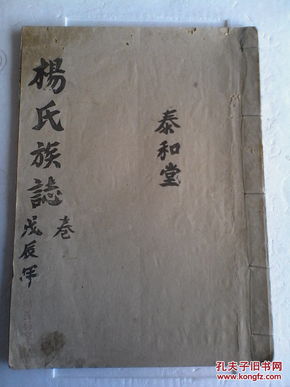 楊氏族誌
卷
戊辰年
泰和堂
孔夫子旧书网